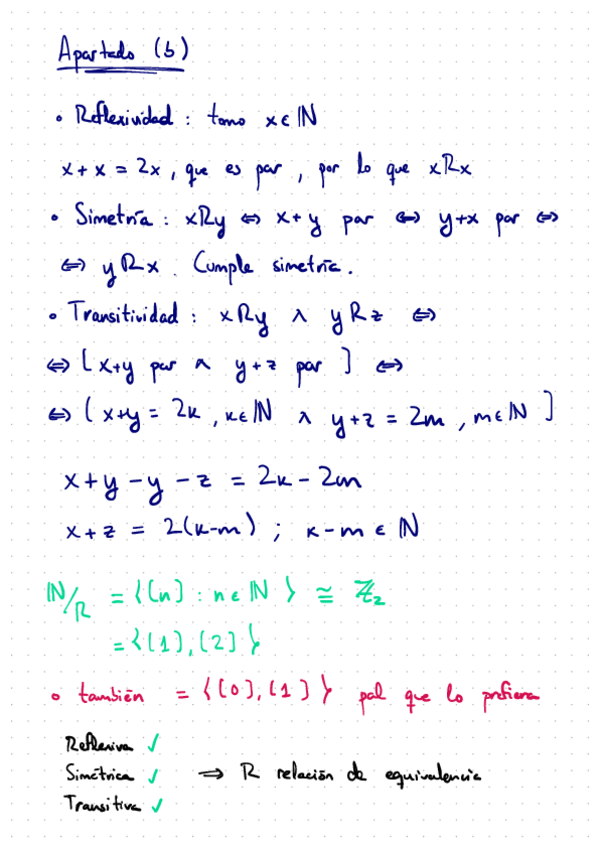 Apartado (b)
• Reflexividad : tomo x ∈ ℕ
x + x = 2x , que es par , por lo que xRx
• Simetría : xRy ⇔ x + y par ⇔ y + x par ⇔
⇔ yRx . Cumple simetría .
• Transitividad : xRy ∧ yRz ⇔
⇔ [ x+y par ∧ y+z par ] ⇔
⇔ [ x+y = 2k , k∈ℕ ∧ y+z = 2m , m∈ℕ ]
x + y - y - z = 2k - 2m
x + z = 2(k-m) ; k - m ∈ ℕ
ℕ/R = { [n] : n∈ℕ } ≅ ℤ₂
= { [1], [2] }
• también = { [0], [1] } pal que lo prefiera
Reflexiva ✓
Simétrica ✓ ⇒ R relación de equivalencia
Transitiva ✓